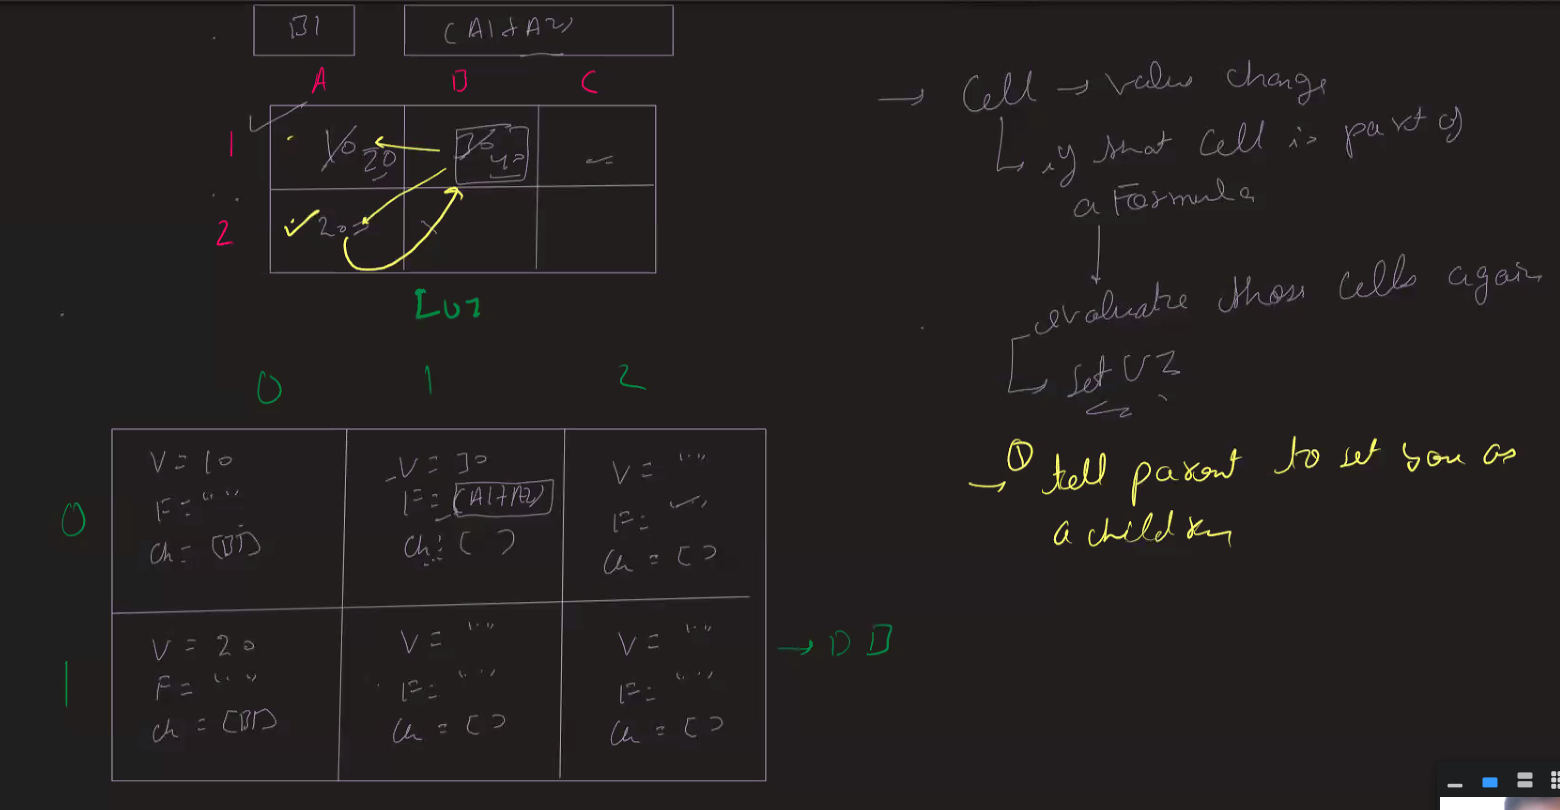 B1 (A1+A2)
A B C
1 10 20 30 40
2 20
[UI]
0 1 2
0
V = 10
F = " "
Ch = [B1]
V = 30
F = (A1+A2)
Ch = [ ]
V = " "
F =
Ch = [ ]
1
V = 20
F = " "
Ch = [B1]
V = " "
F = " "
Ch = [ ]
V = " "
F = " "
Ch = [ ]
→ DB
→ Cell → value change
if that cell is part of
a Formula
evaluate those cells again
set UI
→ ① tell parent to set you as
a children